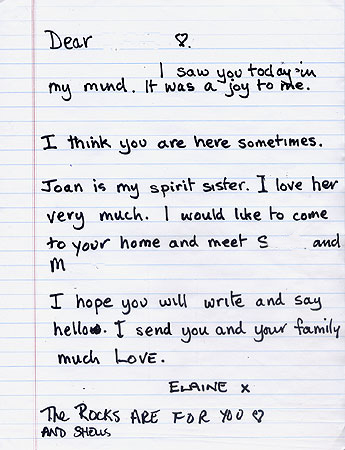 Dear ♡.
I saw you today in
my mind. It was a joy to me.
I think you are here sometimes.
Joan is my spirit sister. I love her
very much. I would like to come
to your home and meet S and
M
I hope you will write and say
hello. I send you and your family
much LOVE.
ELAINE x
The ROCKS ARE FOR YOU ♡
AND SHELLS